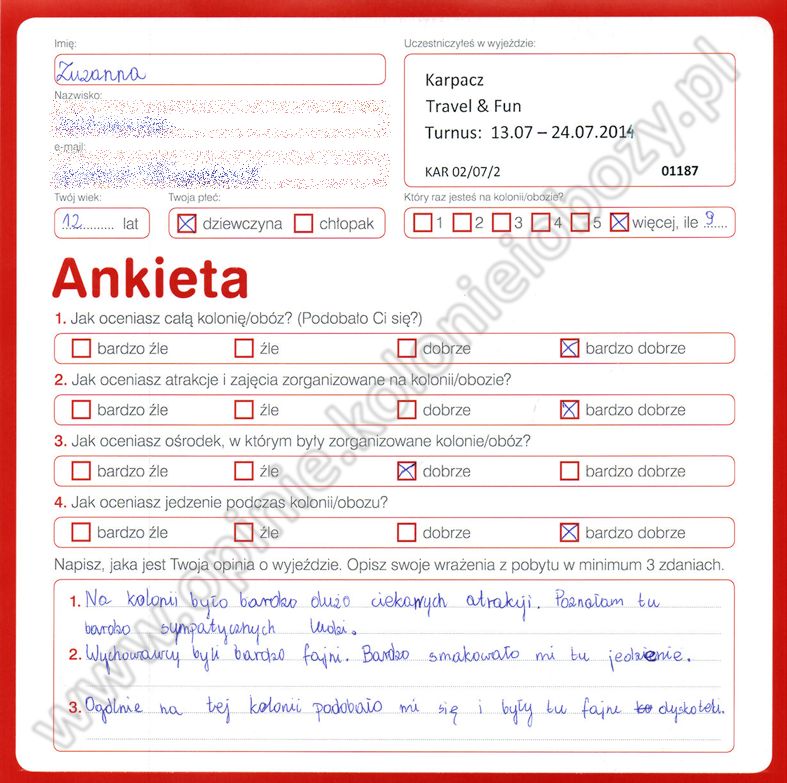 Imię:
Uczestniczyłeś w wyjeździe:
Zuzanna
Karpacz
Travel & Fun
Turnus: 13.07 – 24.07.2014
KAR 02/07/2 01187
Nazwisko:
e-mail:
Twój wiek: Twoja płeć: Który raz jesteś na kolonii/obozie?
12 lat dziewczyna chłopak 1 2 3 4 5 więcej, ile 9
Ankieta
1. Jak oceniasz całą kolonię/obóz? (Podobało Ci się?)
bardzo źle źle dobrze bardzo dobrze
2. Jak oceniasz atrakcje i zajęcia zorganizowane na kolonii/obozie?
bardzo źle źle dobrze bardzo dobrze
3. Jak oceniasz ośrodek, w którym były zorganizowane kolonie/obóz?
bardzo źle źle dobrze bardzo dobrze
4. Jak oceniasz jedzenie podczas kolonii/obozu?
bardzo źle źle dobrze bardzo dobrze
Napisz, jaka jest Twoja opinia o wyjeździe. Opisz swoje wrażenia z pobytu w minimum 3 zdaniach.
1. Na kolonii było bardzo dużo ciekawych atrakcji. Poznałam tu
bardzo sympatycznych ludzi.
2. Wychowawcy byli bardzo fajni. Bardzo smakowało mi tu jedzenie.
3. Ogólnie na tej kolonii podobało mi się i były tu fajne dyskoteki.
www.opinie.kolonieiobozy.pl